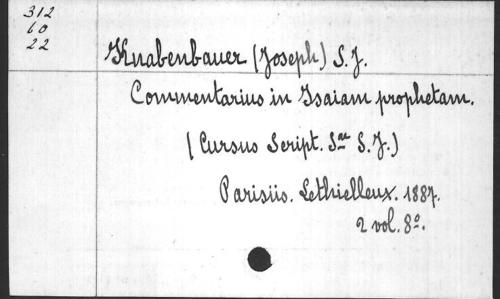 312
60
22
Knabenbauer (Joseph) S.J.
Commentarius in Isaiam prophetam.
(Cursus Script. Sae S.J.)
Parisiis. Lethielleux. 1887.
2 vol. 8o.